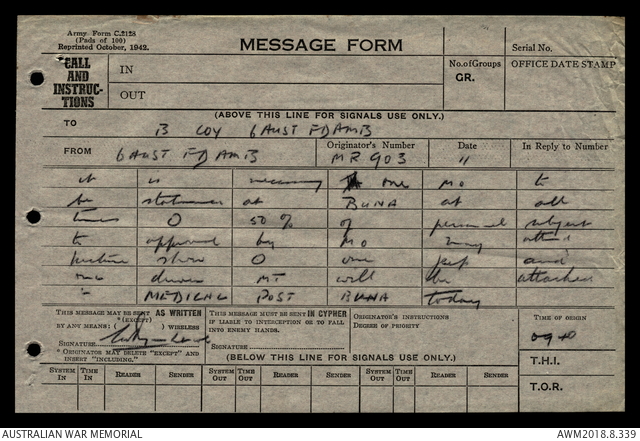 Army Form C.2128
(Pads of 100)
Reprinted October, 1942.
MESSAGE FORM
Serial No.
CALL
AND
INSTRUC-
TIONS
IN
OUT
No. of Groups
GR.
OFFICE DATE STAMP
(ABOVE THIS LINE FOR SIGNALS USE ONLY.)
TO B COY 6 AUST FD AMB
FROM 6 AUST FD AMB Originator's Number MR 903 Date 11 In Reply to Number
it is necessary one MO to
be stationed at BUNA at all
times O 50 % of personnel subject
to approval by MO may attend
picture show O one jeep and
one driver MT will be attached
to MEDICAL POST BUNA today
THIS MESSAGE MAY BE SENT AS WRITTEN
*(EXCEPT)
BY ANY MEANS ( ) WIRELESS
SIGNATURE
* ORIGINATOR MAY DELETE "EXCEPT" AND
INSERT "INCLUDING."
THIS MESSAGE MUST BE SENT IN CYPHER
IF LIABLE TO INTERCEPTION OR TO FALL
INTO ENEMY HANDS.
SIGNATURE
ORIGINATOR'S INSTRUCTIONS
DEGREE OF PRIORITY
TIME OF ORIGIN
0940
T.H.I.
T.O.R.
(BELOW THIS LINE FOR SIGNALS USE ONLY.)
SYSTEM IN TIME IN READER SENDER SYSTEM OUT TIME OUT READER SENDER SYSTEM OUT TIME OUT READER SENDER
AUSTRALIAN WAR MEMORIAL
AWM2018.8.339